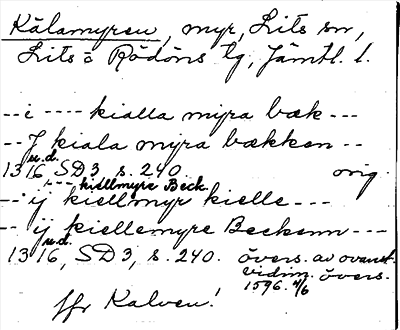 Kälamyren, myr, Lits sn,
Lits o Rödöns tg, Jämtl. l.
-- i ---- kialla myra bæk ---
-- J kiala myra bækken --
u.d.
1316 SD 3 s. 240. orig.
--- kiellmyre Beck.
-- ij kiellmyr kielle ---
-- ij kiellemyre Beckenn ---
u.d.
1316, SD 3, s. 240. övers. av ovanst.
vidim. övers.
1596 4/6
Jfr Kalven!